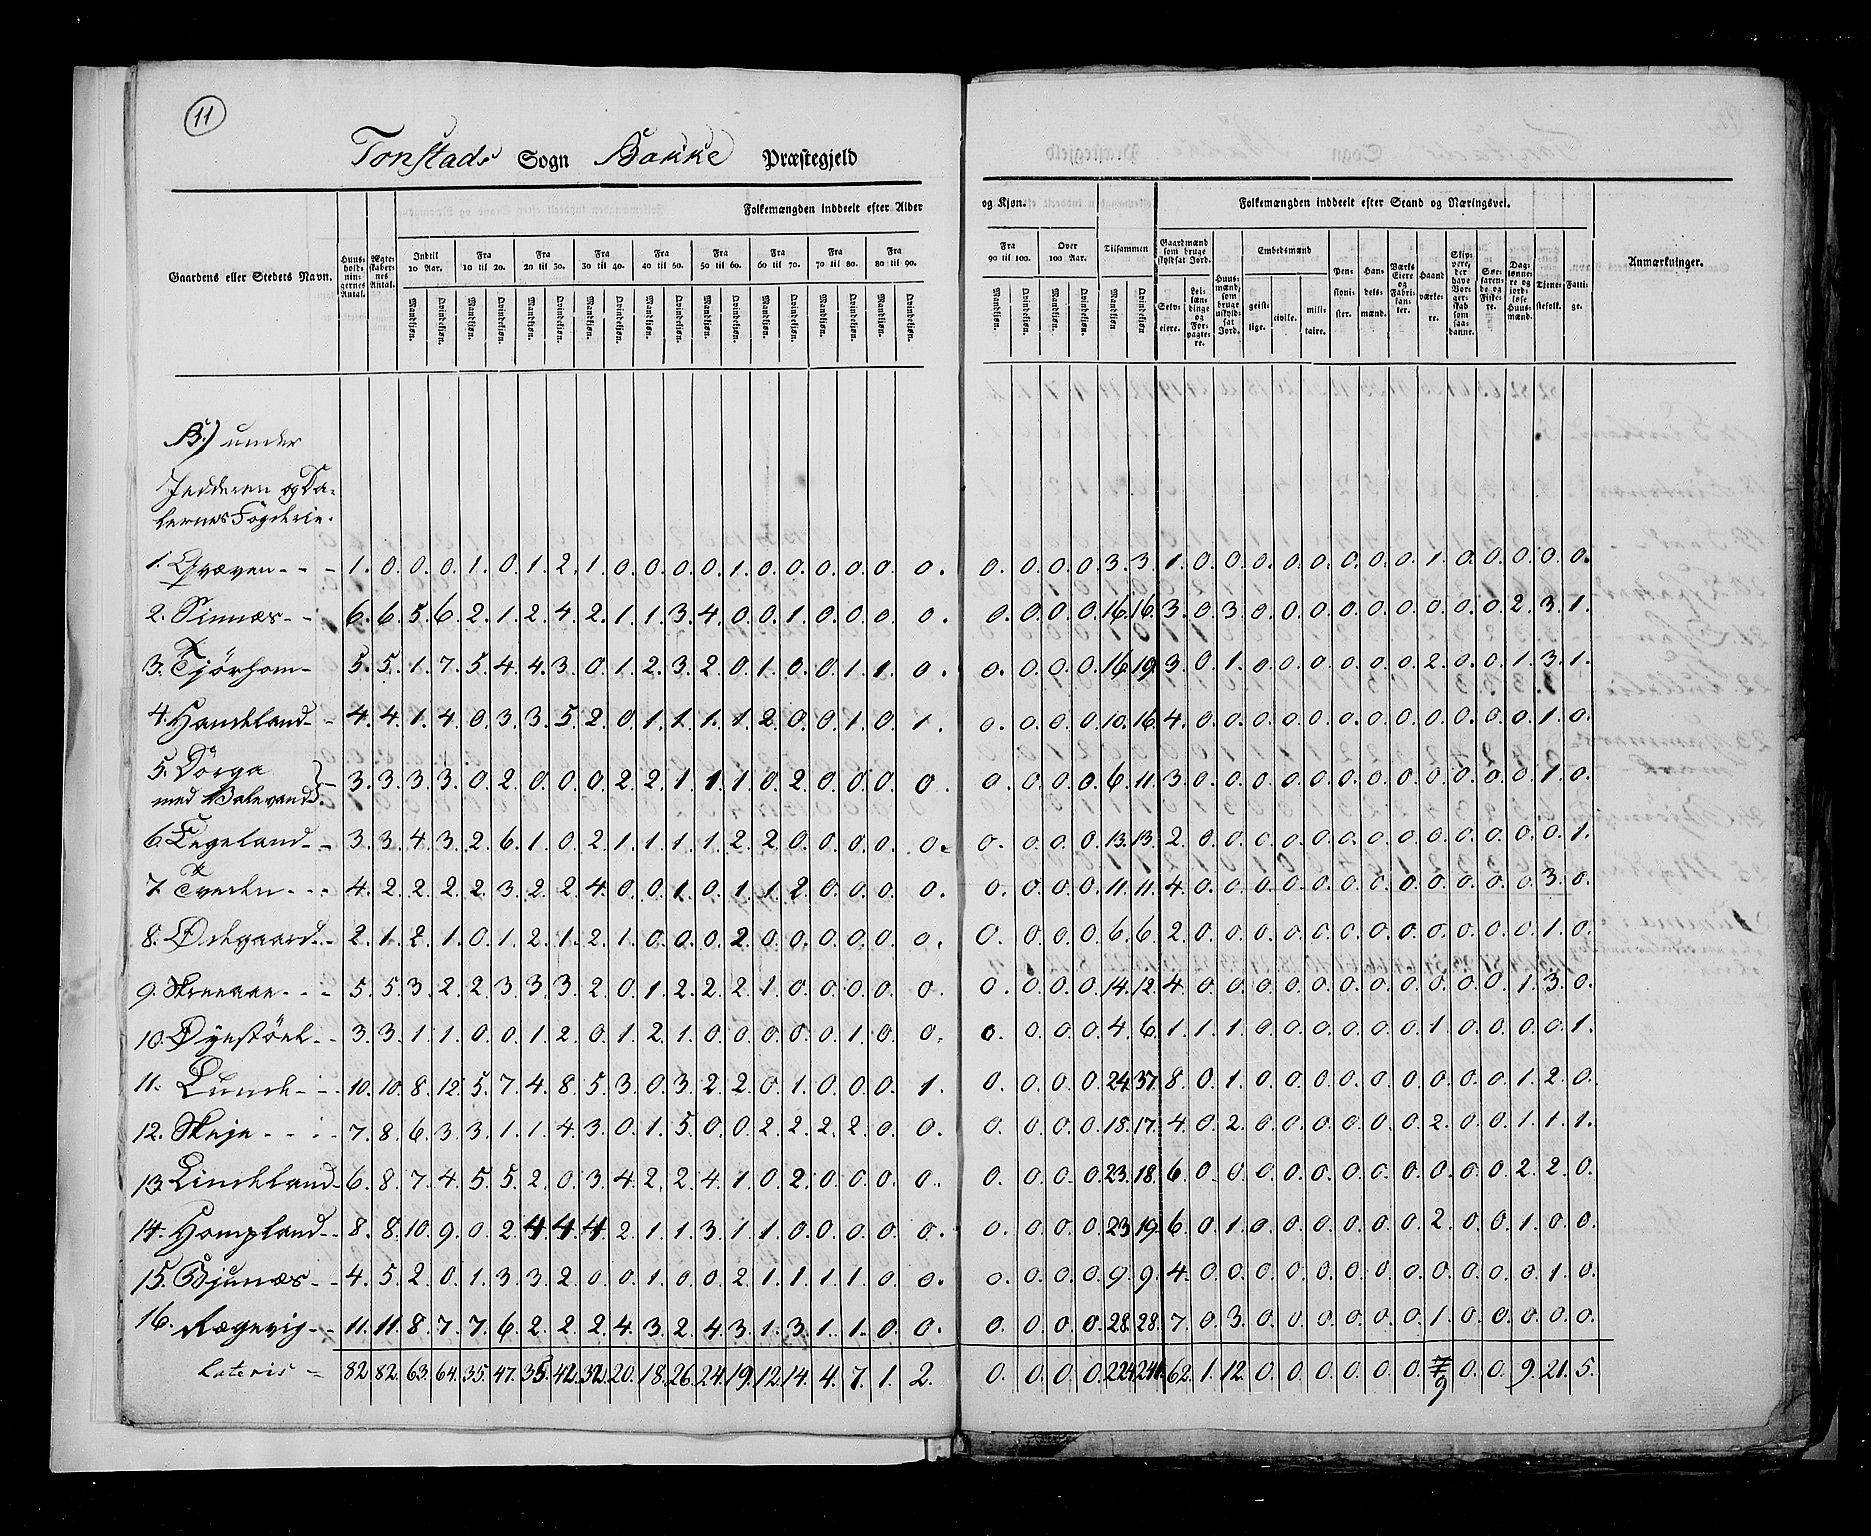 11
Tonstads Sogn Bakke Præstegjeld
Folkemængden inddeelt efter Alder og Kjøn. Folkemængden inddeelt efter Stand og Næringsvei.
Gaardens eller Stedets Navn. Huusholdnin-gernes Antal. Ægte-skaber-nes Antal. Indtil 10 Aar. Fra 10 til 20. Fra 20 til 30. Fra 30 til 40. Fra 40 til 50. Fra 50 til 60. Fra 60 til 70. Fra 70 til 80. Fra 80 til 90. Fra 90 til 100. Over 100 Aar. Tilsammen Gaardmænd som bruge skyldsat Jord. Huus-mænd, som bruge uskyld-sat Jord. Embedsmænd Pen-sioni-ster. Han-dels-mænd. Værks Eiere og Fabri-kan-ter. Haand-værke-re. Søe-farende og Fiske-re. Dag-lønne-re og jord-løse Huus-mænd. Tjene-stefolk. Fatti-ge. Anmærkninger.
Mandkjøn. Qvindekjøn. Selv-eiere. Lei-len-dinge og For-pagte-re. geist-lige. civile. mili-taire.
B.) under
Jedderen og Da-
lernes Fogderie.
1. Qvæven - - - 1. 0. 0. 0. 1. 0. 1. 2. 1. 0. 0. 0. 0. 1. 0. 0. 0. 0. 0. 0. 0. 0. 0. 0. 3. 3. 1. 0. 0. 0. 0. 0. 0. 0. 0. 1. 0. 0. 0. 0. 0.
2. Sinnæs - - 6. 6. 5. 6. 2. 1. 2. 4. 2. 1. 1. 3. 4. 0. 0. 1. 0. 0. 0. 0. 0. 0. 0. 0. 16. 16. 3. 0. 3. 0. 0. 0. 0. 0. 0. 0. 0. 0. 2. 3. 1.
3. Tjørhom - 5. 5. 1. 7. 5. 4. 4. 3. 0. 1. 2. 3. 2. 0. 1. 0. 0. 1. 1. 0. 0. 0. 0. 0. 16. 19. 3. 0. 1. 0. 0. 0. 0. 0. 0. 2. 0. 0. 1. 3. 1.
4. Handeland - - 4. 4. 1. 4. 0. 3. 3. 5. 2. 0. 1. 1. 1. 1. 2. 0. 0. 1. 0. 1. 0. 0. 0. 0. 10. 16. 4. 0. 0. 0. 0. 0. 0. 0. 0. 0. 0. 0. 0. 1. 0.
5. Dorga
med Salevand - 3. 3. 3. 3. 0. 2. 0. 0. 0. 2. 2. 1. 1. 1. 0. 2. 0. 0. 0. 0. 0. 0. 0. 0. 6. 11. 3. 0. 0. 0. 0. 0. 0. 0. 0. 0. 0. 0. 0. 1. 0.
6. Fegeland - - 3. 3. 4. 3. 2. 6. 1. 0. 2. 1. 1. 1. 1. 2. 2. 0. 0. 0. 0. 0. 0. 0. 0. 0. 13. 13. 2. 0. 0. 0. 0. 0. 0. 0. 0. 0. 0. 0. 0. 0. 1.
7. Tveden - - - 4. 2. 2. 2. 2. 3. 2. 2. 4. 0. 0. 1. 0. 1. 1. 2. 0. 0. 0. 0. 0. 0. 0. 0. 11. 11. 4. 0. 0. 0. 0. 0. 0. 0. 0. 0. 0. 0. 0. 3. 0.
8. Ødegaard - - 2. 1. 2. 1. 0. 1. 2. 1. 2. 1. 0. 0. 0. 2. 0. 0. 0. 0. 0. 0. 0. 0. 0. 0. 6. 6. 2. 0. 0. 0. 0. 0. 0. 0. 0. 0. 0. 0. 0. 1. 0.
9. Skreaae - - - 5. 5. 3. 2. 2. 3. 3. 3. 2. 0. 1. 2. 2. 2. 1. 0. 0. 0. 0. 0. 0. 0. 0. 0. 14. 12. 4. 0. 0. 0. 0. 0. 0. 0. 0. 0. 0. 0. 1. 3. 0.
10. Øyestöel - - 3. 3. 1. 1. 0. 0. 1. 2. 0. 1. 2. 1. 0. 0. 0. 0. 0. 1. 0. 0. 0. 0. 0. 0. 4. 6. 1. 1. 1. 0. 0. 0. 0. 0. 0. 1. 0. 0. 0. 0. 1.
11. Lunde - - - 10. 10. 8. 12. 5. 7. 4. 8. 5. 3. 0. 3. 2. 2. 0. 1. 0. 0. 0. 1. 0. 0. 0. 0. 24. 37. 8. 0. 1. 0. 0. 0. 0. 0. 0. 0. 0. 0. 1. 2. 0.
12. Skeje - - - - 7. 8. 6. 3. 3. 1. 1. 4. 3. 0. 1. 5. 0. 0. 2. 2. 2. 2. 0. 0. 0. 0. 0. 0. 18. 17. 4. 0. 2. 0. 0. 0. 0. 0. 0. 2. 0. 0. 1. 1. 1.
13. Lindeland - 6. 8. 7. 4. 5. 5. 2. 0. 3. 4. 2. 2. 4. 1. 0. 2. 0. 0. 0. 0. 0. 0. 0. 0. 23. 18. 6. 0. 0. 0. 0. 0. 0. 0. 0. 0. 0. 0. 2. 2. 0.
14. Hompland - - 8. 8. 10. 9. 0. 2. 4. 4. 4. 2. 1. 1. 3. 1. 1. 0. 0. 0. 0. 0. 0. 0. 0. 0. 23. 19. 6. 0. 1. 0. 0. 0. 0. 0. 0. 2. 0. 0. 1. 0. 0.
15. Bjunæs - - 4. 5. 2. 0. 1. 3. 3. 2. 0. 0. 1. 0. 0. 2. 1. 1. 1. 1. 0. 0. 0. 0. 0. 0. 9. 9. 4. 0. 0. 0. 0. 0. 0. 0. 0. 0. 0. 0. 0. 1. 0.
16. Rægevig - - 11. 11. 8. 7. 7. 6. 2. 2. 2. 4. 3. 2. 4. 3. 1. 3. 1. 1. 0. 0. 0. 0. 0. 0. 28. 28. 7. 0. 3. 0. 0. 0. 0. 0. 0. 1. 0. 0. 0. 0. 0.
Lateris - 82. 82. 63. 64. 35. 47. 35. 42. 32. 20. 18. 26. 24. 19. 12. 14. 4. 7. 1. 2. 0. 0. 0. 0. 224. 241. 62. 1. 12. 0. 0. 0. 0. 0. 0. 7 0. 0. 9. 21. 5.
9